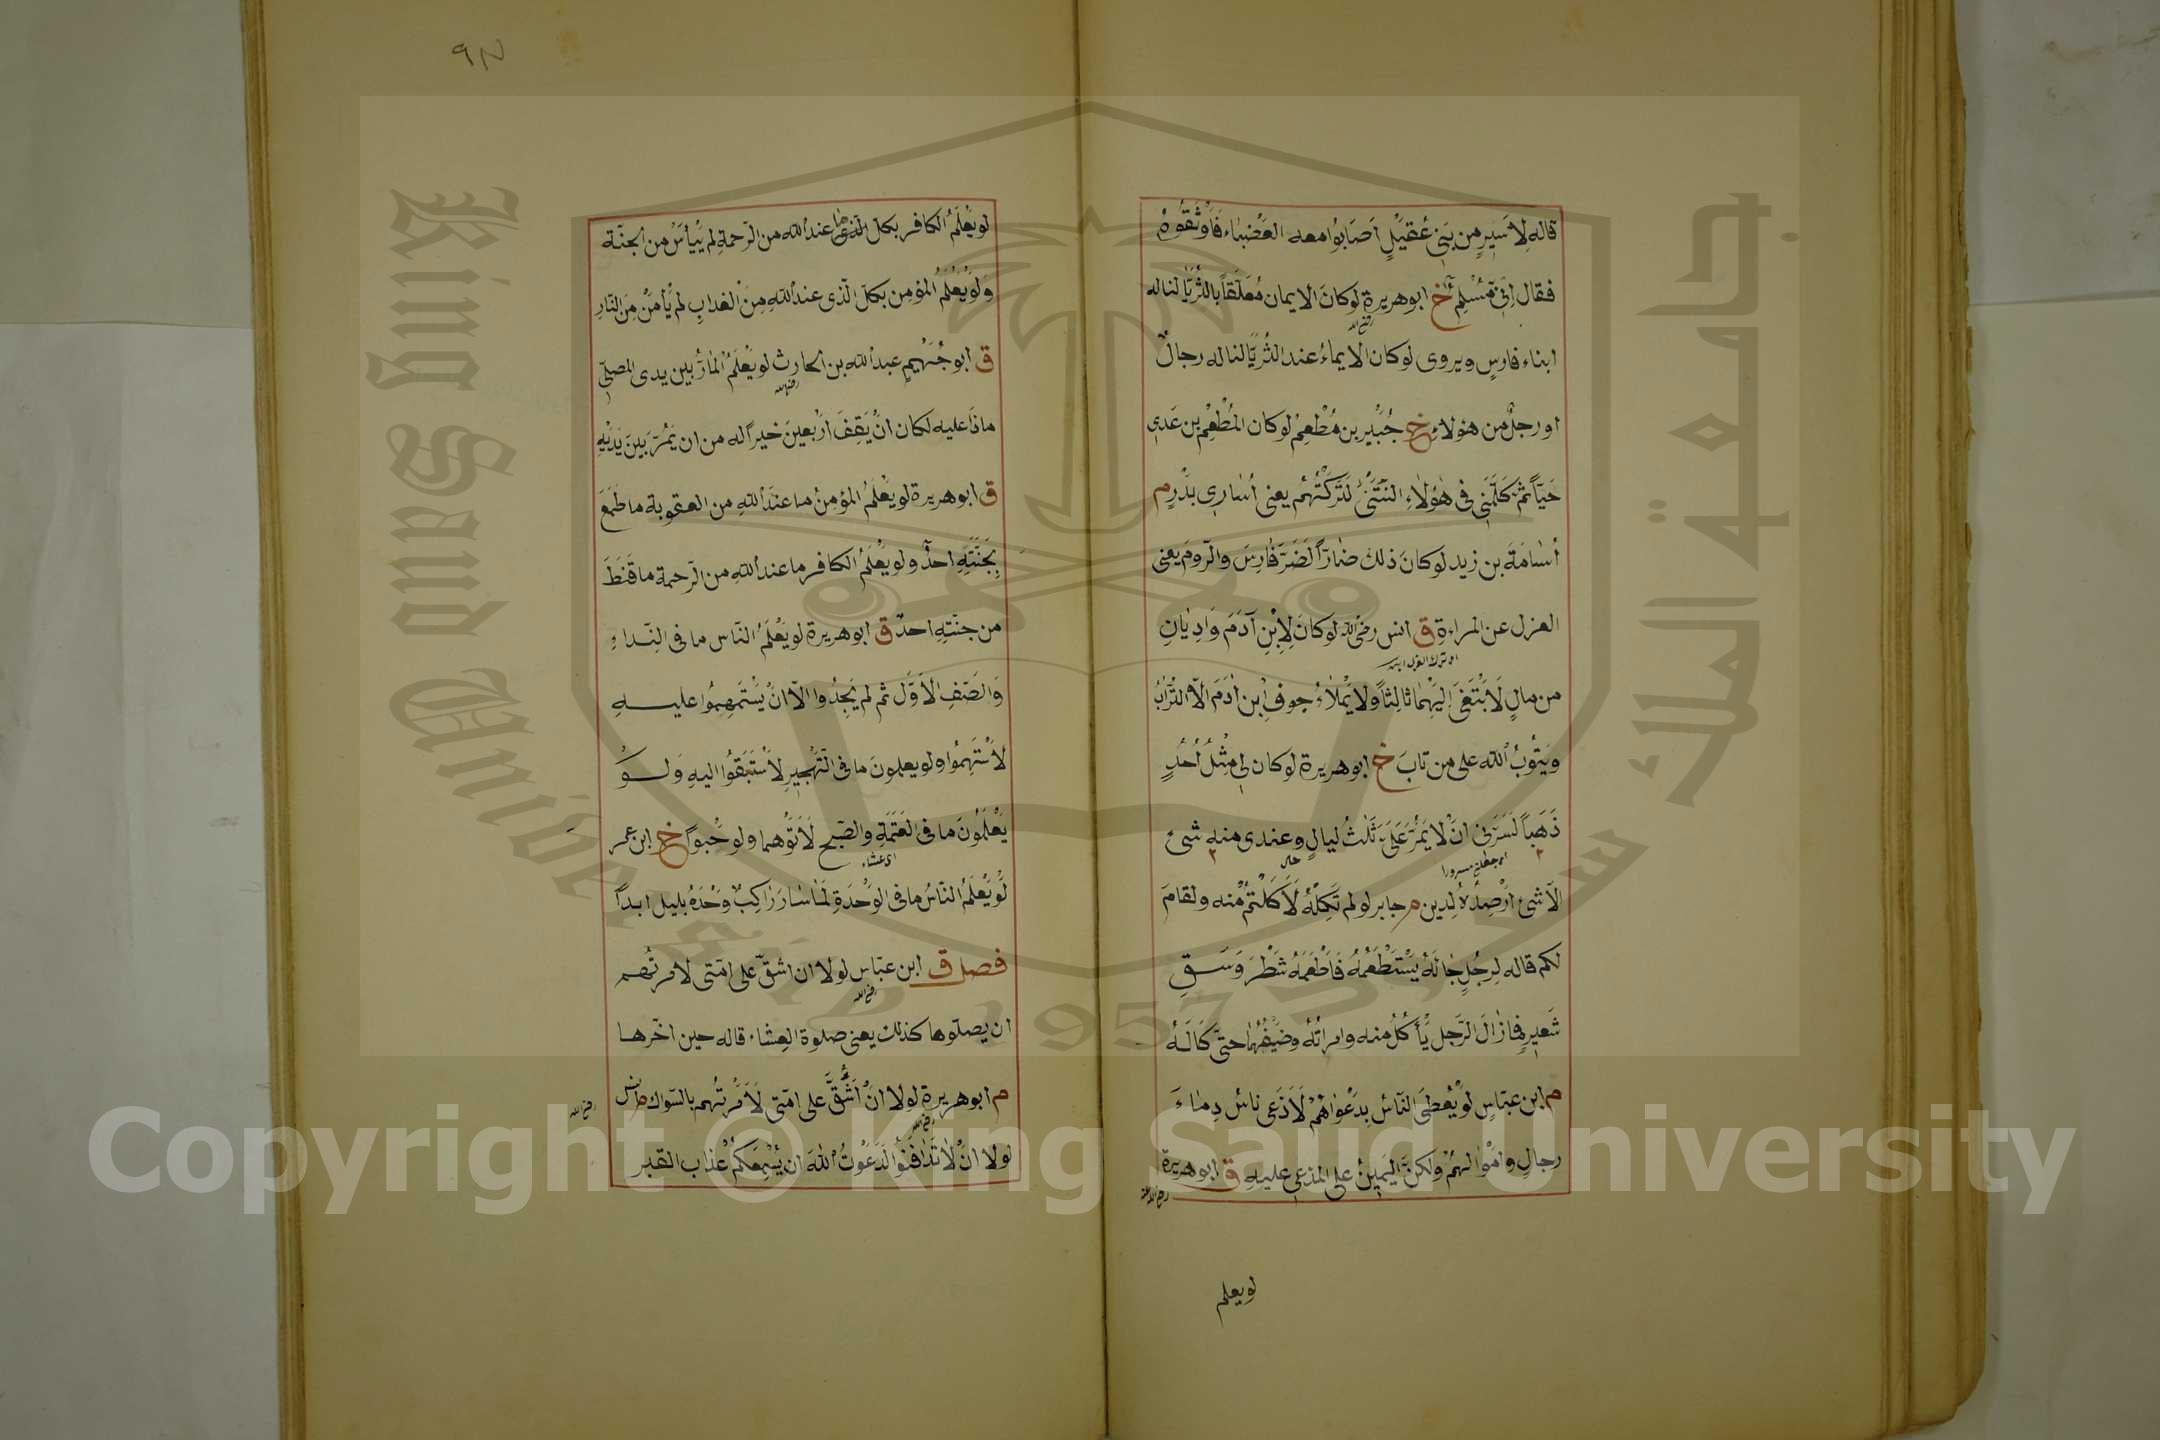 قاله لِاَسيرٍ من بَنى عُقَيْلٍ اَصَابوا معه العَضْبَاء فَاَوْثَقُوهُ
فقال اِنّى مُسْلِمٌ خ ابو هريرة لوكانَ الايمان مُعَلَّقاً بالثُّرَيَّا لناله
رضى الله
ابناء فارسٍ ويروى لوكان الايمانُ عند الثُّرَيَّا لناله رجالٌ
اورجلٌ من هؤلاءِ خ جُبَيْر بن مُطْعِمْ لوكان المُطْعِمْ بن عَدى
حَيّاً ثم كَلَّمَنِى فى هؤلاءِ النَّتْنَى لَتَرَكْتُهُم يعنى اُسَارى بَدْرٍ م
اُسَامَة بن زيد لوكانَ ذلك ضَارّاً لَضَرَّ فَارِسَ والرّومَ يعنى
العزل عن المراءةِ ق انس رضى الله لوكانَ لِاِبْنِ آدَمَ وَادِيَانِ
اى ترك العزل
من مالٍ لَابْتَغَى اِلَيْهِمَا ثالِثاً ولا يَمْلَاءُ جوف اِبن اٰدَمَ الّا التُّرَابُ
ويَتُوبُ الله على من تابَ خ ابو هريرة لوكان لى مِثْلُ اُحُدٍ
ذَهَباً لَسَرَّنى انْ لا يَمُرَّ عَلَىَّ ثَلٰثُ ليالٍ وعندى منه شئ
اى جعلنى مسرورا
الّا شئ اَرْصِدُهُ لِدين م جابر لولم تَكِلْهُ لَاَكَلْتُمْ مْنه ولقامَ
لكم قاله لِرجُلٍ جَائهُ يَسْتَطْعِمُهُ فَاَطْعَمَهُ شَطْرَ وَسَقِ
شَعيرٍ فمازالَ الرّجل يَأْكُلُ منه وامرأتُهُ وضَيْفُهُمَا حتىّ كَالَهُ
م ابن عبّاسٍ لَوْيُعْطَى النّاسُ بِدَعْوَاهُمْ لَادَّعَى ناسُ دِمَاءَ
رجالٍ واموالهُمْ ولكنَّ اليَمينُ على المدّعى عليهِ ق ابوهريرة
رضى الله عنه
لويعلم
٩٨
لويَعْلَمُ الكافر بكل الذى عند الله من الرّحمةِ لم يَيْأَسْ من الجنّة
وَلَوْيَعْلَمُ المؤمِن بكلّ الّذى عند الله مِنَ الْعَذابِ لَمْ يَأْمَنْ مِنَ النّارِ
ق ابو جُهَيْمٍ عبد الله بن الحارث لويَعْلَمُ المارُّ بين يدى المصلّى
رضى الله
ماذا عليه لكان انْ يَقِفَ اَرْبعينَ خيراً له من ان يَمُرّ بَينَ يَدَيْهِ
ق ابو هريرة لويَعْلَمُ المؤمنُ ما عندَ الله من العقوبة ما طَمِعَ
بِجَنَّتِهِ احدٌ ولويَعْلَمُ الكافر ما عند الله من الرّحمة ما قَنَطَ
من جنّتهِ احدٌ ق ابو هريرة لويَعْلَمُ النّاس ما فى النّداءِ
وَالصّفِ الاَوّل ثم لم يَجِدُوا الّا انْ يَسْتَهِمُوا عليهِ
لاَسْتَهمُوا ولويعلمونَ ما فى التّهْجيرِ لَاسْتَبَقُوا اليهِ وَلَوْ
يَعْلَمُونَ ما فى لعَتَمَةِ والصّبح لَاَتَوْهُما ولو حَبْواً خ ابن عمر
اى عشاء
لَوْيَعْلَمُ النّاسُ ما فى الوَحْدَةِ لَمَا سَارَ رَاكِبٌ وَحْدَهُ بليل ابداً
فصل ق ابن عبّاس لولا ان اشقّ على امّتى لامرتُهم
رضى الله
ان يصلّوها كذلك يعنى صلوة العِشَاء قاله حين اخّرها
م ابو هريرة لولا انْ اَشُقَّ على امّتى لَاَمَرْتُهم بالسّواك م انس
رضى الله
رضى الله
لولا انْ لَاتَدَافَنُوا لَدَعَوْتُ اللهَ ان يُسْمِعَكُمْ عْذاب القبر
King Saud University
جامعة الملك سعود
1957
Copyright © King Saud University